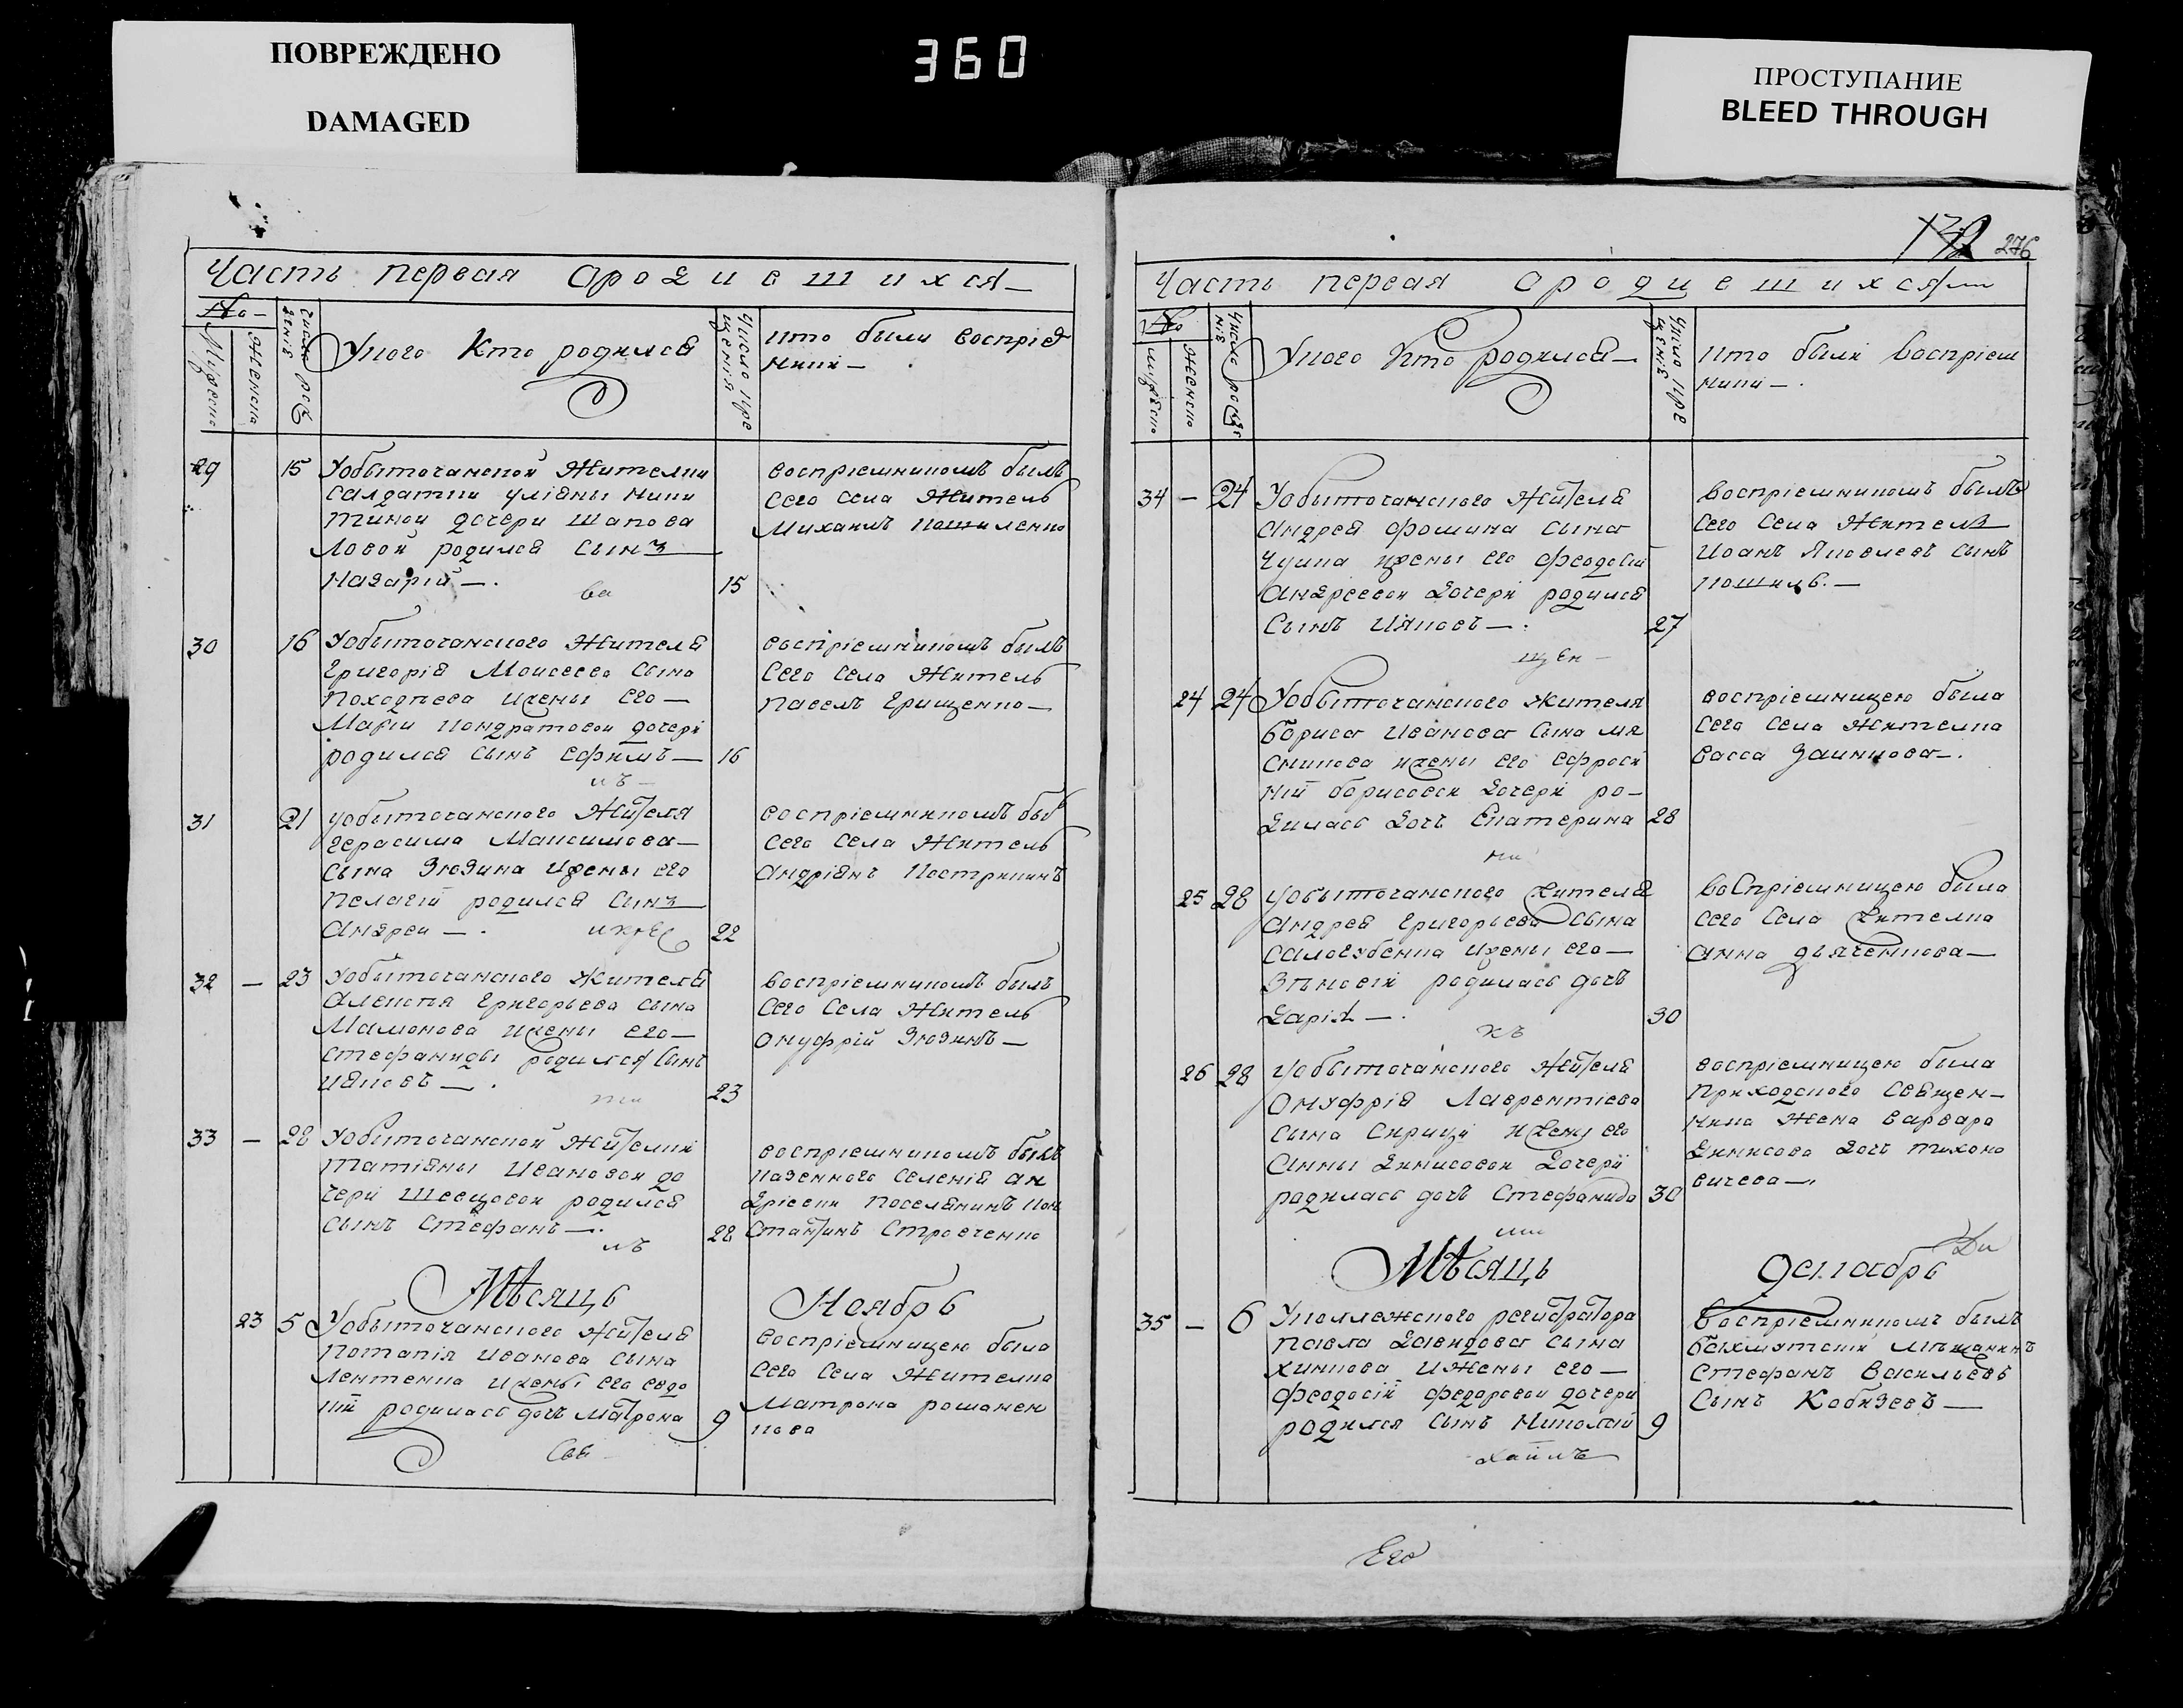 ПОВРЕЖДЕНО
DAMAGED
360
ПРОСТУПАНИЕ
BLEED THROUGH
276
Часть первая о родившихся
№
Мужеска
Женска
Число рож
денія
У кого Кто родился
Число кре
щенія
кто были воспріем
ники
29 15 У обыточанской Жителки
Салдатки уліяны Ники
тиной дочери Шапова
ловой родился Сынъ
Назарій 15
воспріемникомъ былъ
Сего Села Житель
Михаилъ Кошиленко
30 16 У обыточанского Жителя
Григорія Моисеева Сына
Походнева и жены Его
Маріи Кондратовой дочери
родился Сынъ Ефимъ 16
воспріемникомъ былъ
Сего Села Житель
Павелъ Грищенко
31 21 у обыточанского Жителя
Герасима Максимова
Сына Зюзина и жены его
Пелагіи родился Синъ
Андрей 22
воспріемникомъ был
Сего Села Житель
Андріянъ Пострикинъ
32 23 У обыточанского Жителя
Алексѣя Григорьева Сына
Мамонова и жены его
Стефаниды родился Сынъ
Іяковъ 23
воспріемникомъ былъ
Сего Села Житель
Онуфрій Зюзинъ
33 28 У обыточанской Жителки
Татіяны Ивановой до
чери Шевцовой родился
Сынъ Стефанъ 28
воспріемникомъ былъ
Казенного Селенія Ан
дріевки Поселянинъ Кон
стантинъ Строченко
Мѣсяцъ Ноябрь
23 5 У обыточанского Жителя
Потапія Иванова Сына
Лентенка и жены Его Евдо
кіи родилась дочъ Матрона 9
Воспріемницею была
Сего Села Жителка
Матрона романен
кова
Часть первая о родившихся
№
Мужеска
Женска
Число рожде
нія
У кого Кто родился
Число кре
щенія
кто были Воспріем
ники
34 24 У обыточанского Жителя
Андрея Фомина Сына
Чуина и жены его Феодосіи
Андреевой Дочери родился
Сынъ Іяковъ 27
Воспріемникомъ былъ
Сего Села Житель
Иоанъ Яковлевъ Сынъ
24 24 У обыточанского Жителя
Бориса Иванова Сына Мя
сникова и жены Его Ефроси
ніи Борисовой Дочери ро
дилась Дочъ Екатерина 28
воспріемницею была
Сего Села Жителка
Васса Заикнова
25 28 У обыточанского Жителя
Андрея Григорьева Сына
Самогубенка и жены его
Зѣновіи родилась дочъ
Дарія 30
Воспріемницею была
Сего Села Жителка
Анна Дьяченкова
26 28 У обыточанского Жителя
Онуфрія Лаврентіева
Сына Скрици и жены его
Анны Динисовой Дочери
родилась дочъ Стефанида 30
воспріемницею была
Приходского Священ
ника Жена Варвара
Динисова Дочъ Тихоно
вичева
Мѣсяцъ Декабрь
35 6 У колежского регистратора
Павла Давидова Сына
Хинкова и Жены его
Феодосіи Федоровой дочери
родился Сынъ Николай 9
Воспріемникомъ былъ
Бахмутскій Мѣщанинъ
Стефанъ Васильевъ
Сынъ Кобизевъ
Его